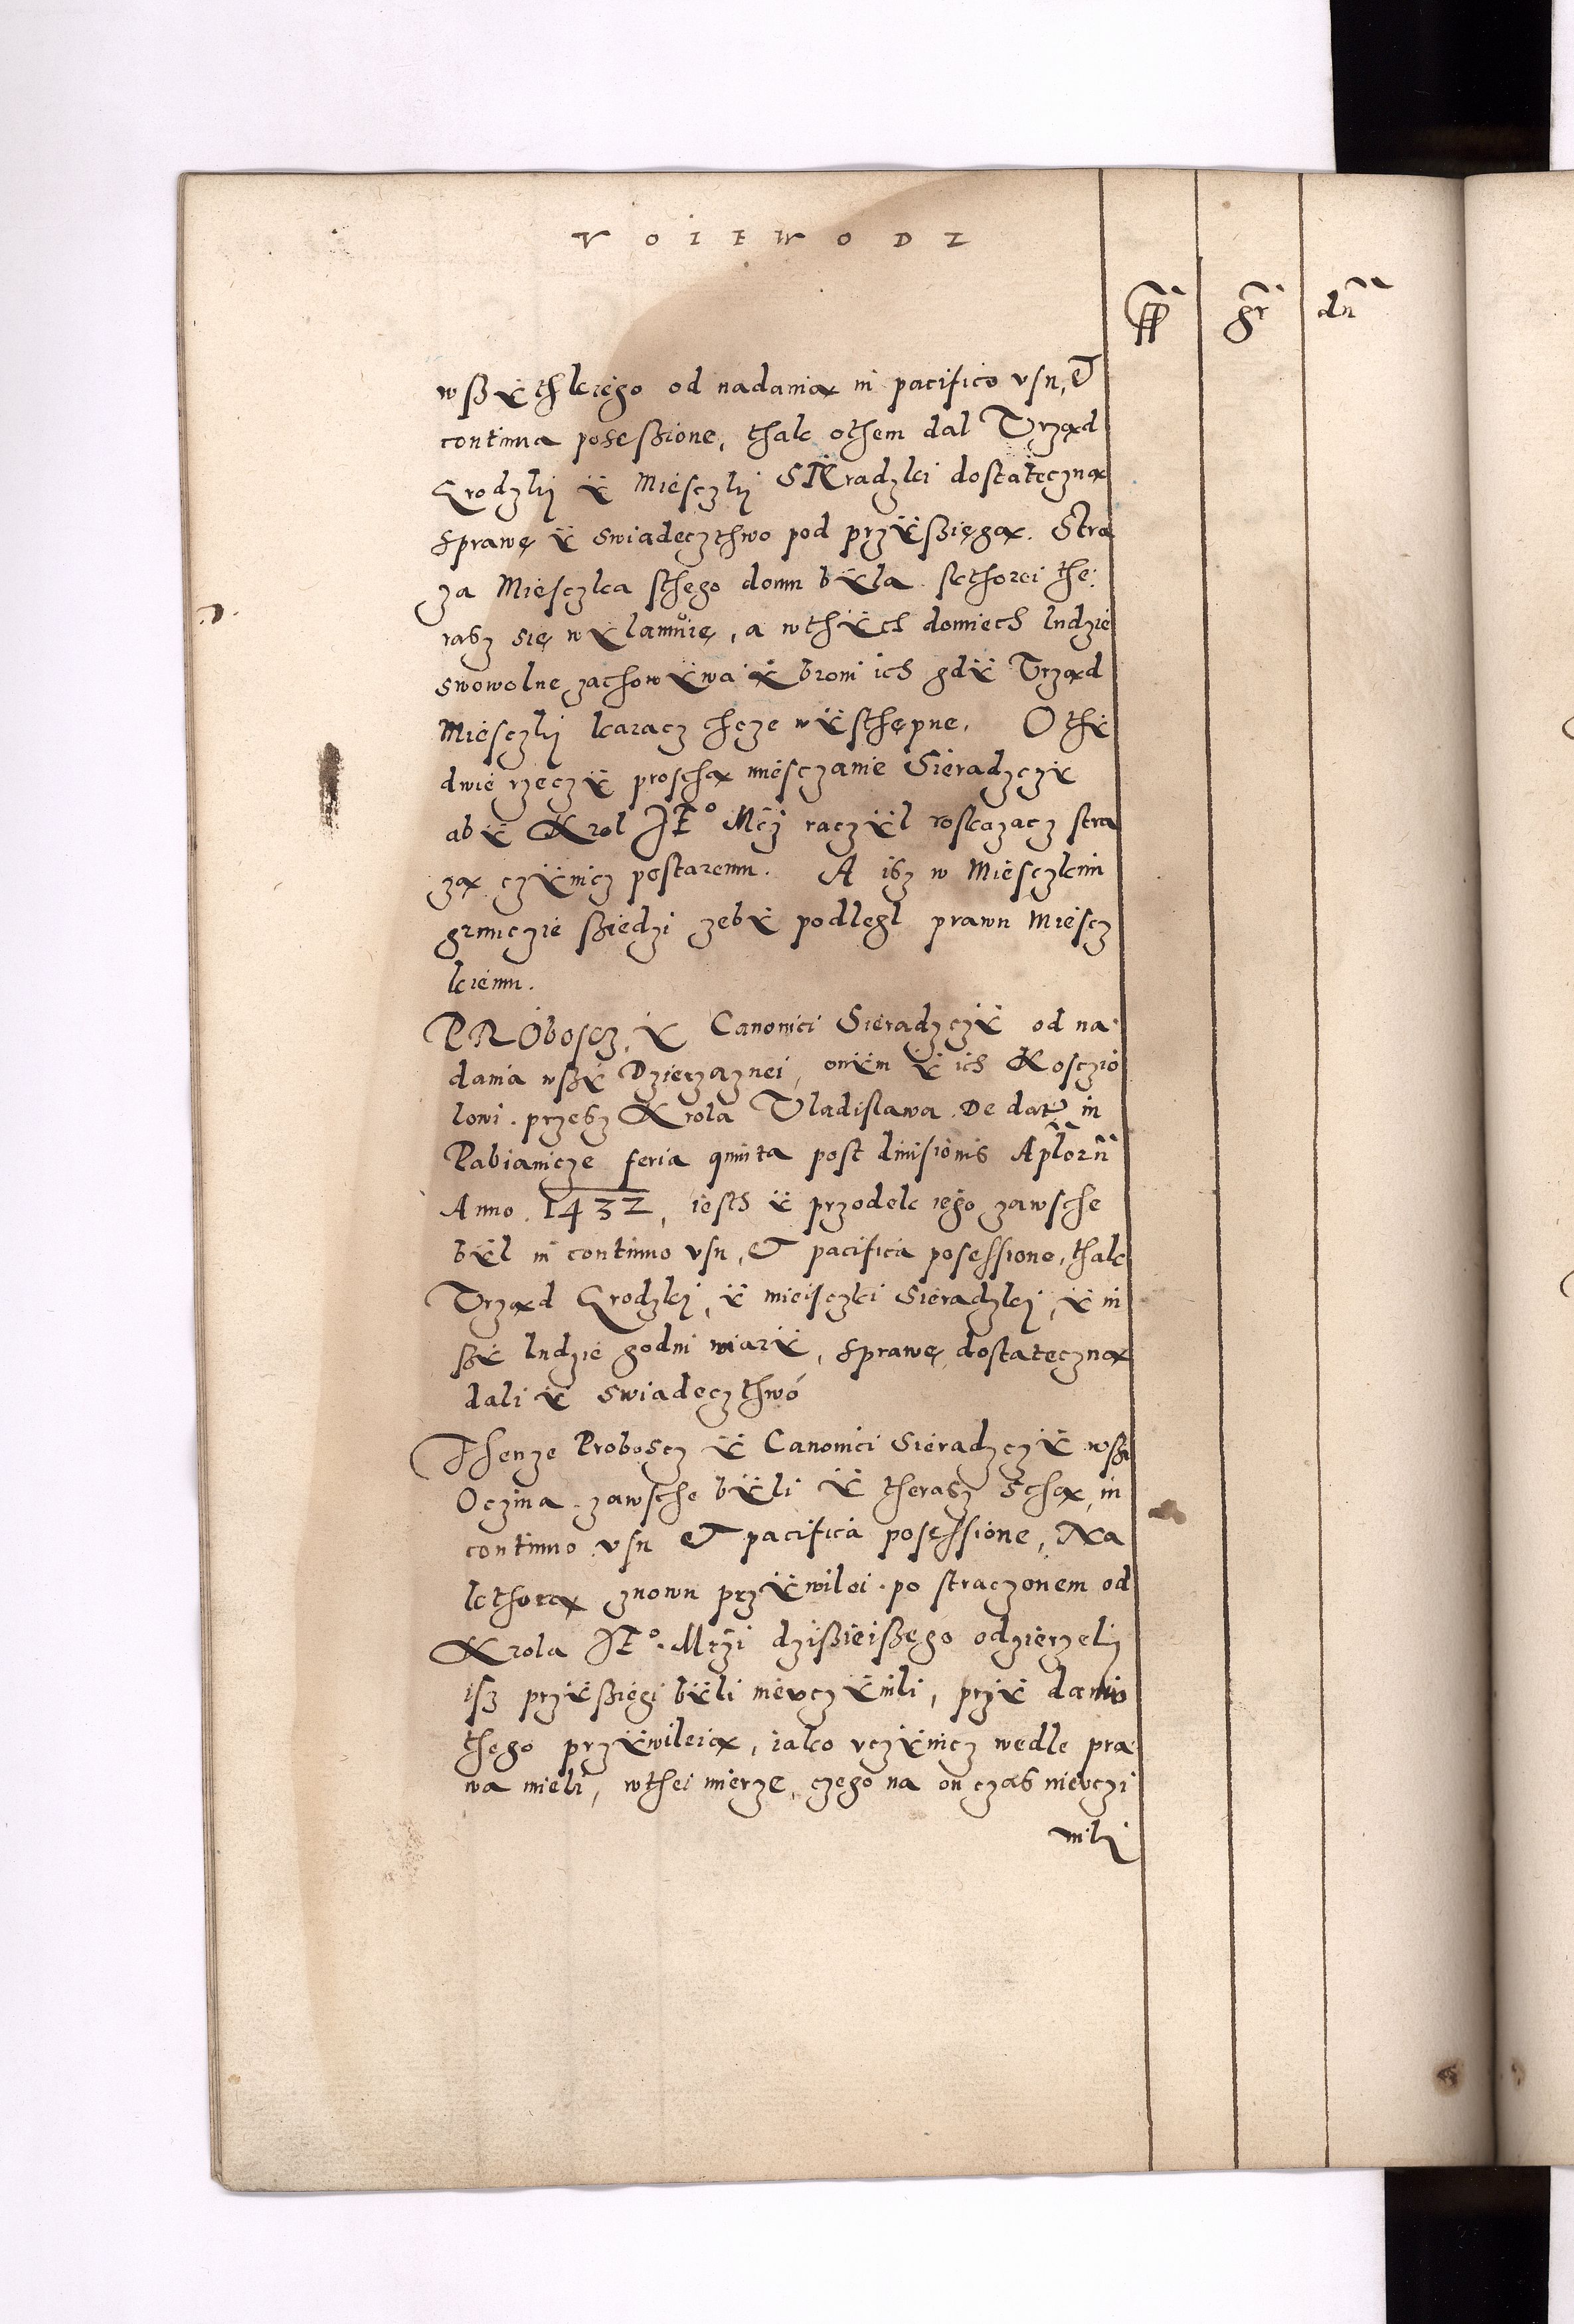 VOIEWODZ
fl gr dn
wssÿthkiego od nadania in pacifico vsu, et
continua posessione, thak othem dal Vrząd
Grodzkij ÿ Miesczkij SIEradzki dostateczną
sprawę ÿ swiadecztwo pod przÿssięgą. Stra
za Miesczka sthego domu bÿla. kthorei the
rasz się wÿlamuie, a wthÿch domiech ludzie
swowolne zachowÿwa ÿ broni ich gdÿ Vrząd
Miesczkij karacz chcze wÿsthępne. O thÿ
dwie rzeczÿ proszą miesczanie Sieradzczÿ
abÿ Krol JE° Mczÿ raczÿl roskazacz stra
zą czÿnicz postaremu. A isz w Miesczkim
gruncie ssiedzi zebÿ podlegl prawu Miescz
kiemu.
PRoboscz, ÿ Canonici Sieradzczÿ od na
dania wssÿ Dzierzaznei, onÿm ÿ ich Kosczio
lowi. przesz Krola Vladislawa. De dat in
Pabianicze feria quinta post diuisionis Aplorū
Anno. 1432, iesth ÿ przodek iego zawsche
bÿl in continuo vsu, et pacifica posessione, thak
Vrząd Grodzkj, ÿ mieisczki Sieradzkj, ÿ in
ssÿ ludzie godni wiarÿ, sprawę dostateczną
dali ÿ swiadeczthwo
Thenze Proboscz ÿ Canonici Sieradzczÿ wssi
Oczina. zawsche bÿli ÿ therasz są, in
continuo vsu et pacifica posessione, Na
kthorą znowu przÿwilei. po straczonem od
Krola JE°. Mczÿi dzissieissego odzierzelij
isz przÿssięgi bÿli nieuczÿnili, przÿ daniu
thego przÿwileią, iako vczÿnicz wedle pra
wa mieli, wthei mierze, czego na on czas nieuczi
nilij